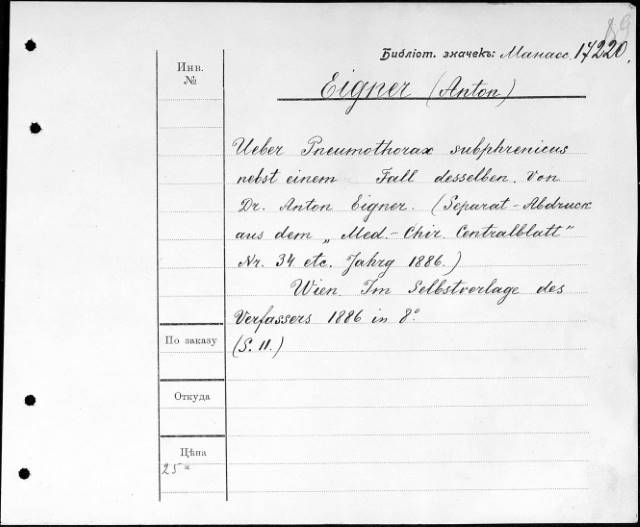 89
Библіот. значекъ: Манасс. 17220.
Инв.
№
Eigner (Anton)
Ueber Pneumothorax subphrenicus
nebst einem Fall desselben. Von
Dr. Anton Eigner. (Separat-Abdruck
aus dem „Med.-Chir. Centralblatt"
Nr. 34 etc. Jahrg 1886.)
Wien. Im Selbstverlage des
Verfassers 1886 in 8°
(S. 11.)
По заказу
Откуда
Цѣна
25 к